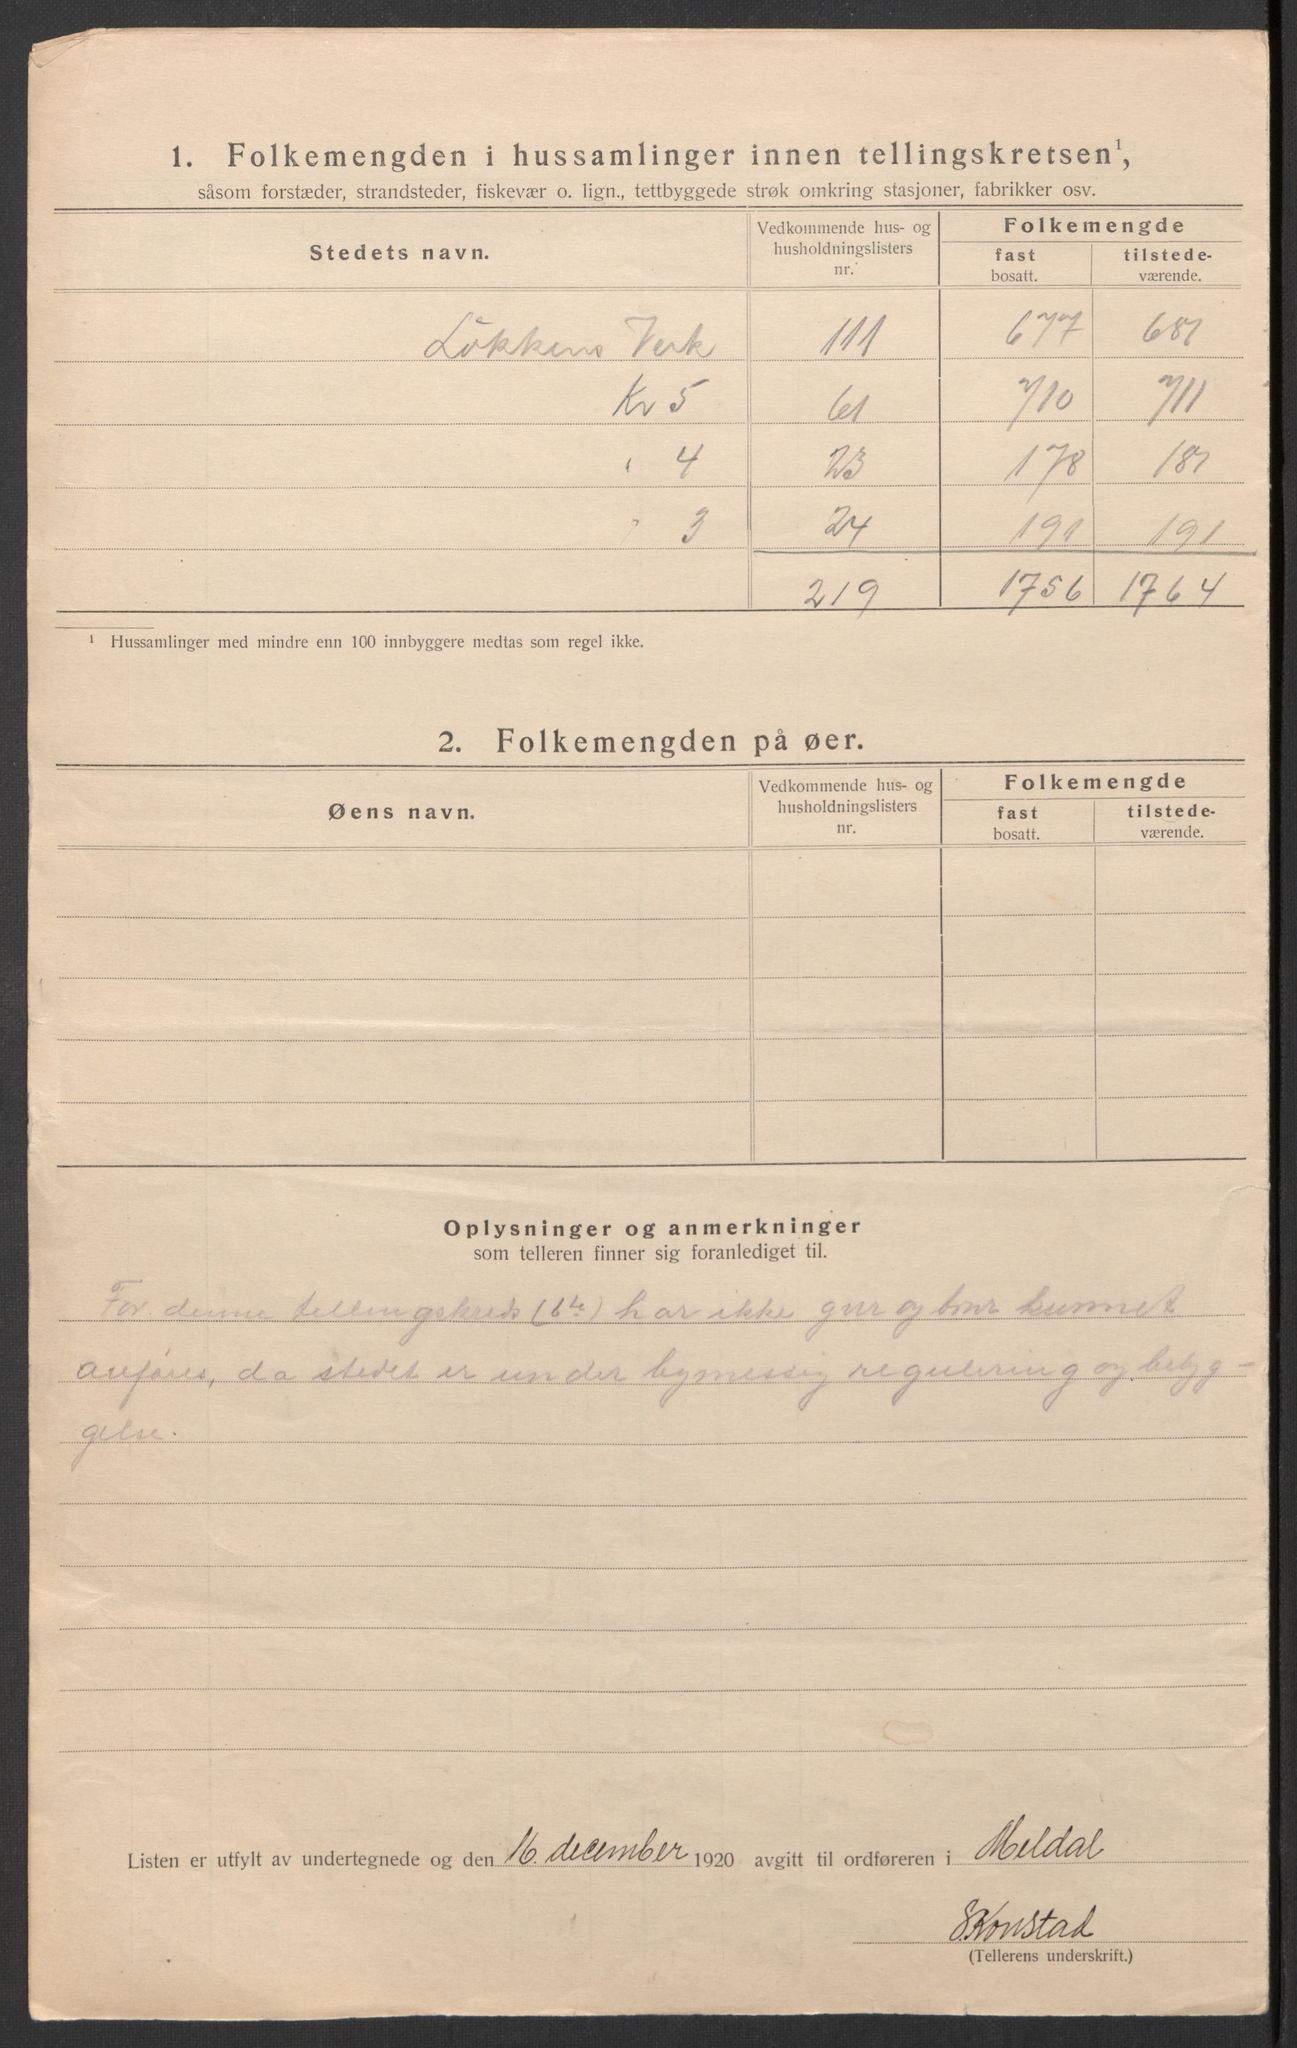 1. Folkemengden i hussamlinger innen tellingskretsen¹,
såsom forstæder, strandsteder, fiskevær o. lign., tettbyggede strøk omkring stasjoner, fabrikker osv.
Stedets navn. Vedkommende hus- og husholdningslisters nr. Folkemengde
fast bosatt. tilstede- værende.
Lökkens Verk 111 677 681
Kr 5 61 710 711
" 4 23 178 181
" 3 24 191 191
219 1756 1764
¹ Hussamlinger med mindre enn 100 innbyggere medtas som regel ikke.
2. Folkemengden på øer.
Øens navn. Vedkommende hus- og husholdningslisters nr. Folkemengde
fast bosatt. tilstede- værende.
Oplysninger og anmerkninger
som telleren finner sig foranlediget til.
For denne tellingskreds (6te) har ikke gnr og bnr kunnet
anføres, da stedet er under bymessig regulering og bebyg-
gelse.
Listen er utfylt av undertegnede og den 16. december 1920 avgitt til ordføreren i Meldal
S. Konstad
(Tellerens underskrift.)